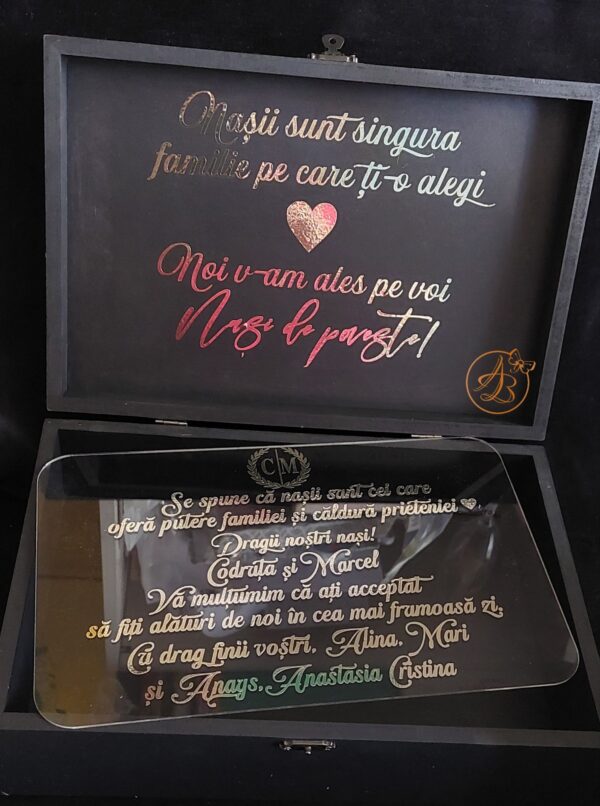 Nașii sunt singura
familie pe care ți-o alegi
Noi v-am ales pe voi
Nași de poveste!
AB
C M
Se spune că nașii sunt cei care
oferă putere familiei și căldură prieteniei
Dragii noștri nași!
Codruța și Marcel
Vă mulțumim că ați acceptat
să fiți alături de noi în cea mai frumoasă zi,
Cu drag finii voștri, Alina, Mari
și Anays, Anastasia Cristina